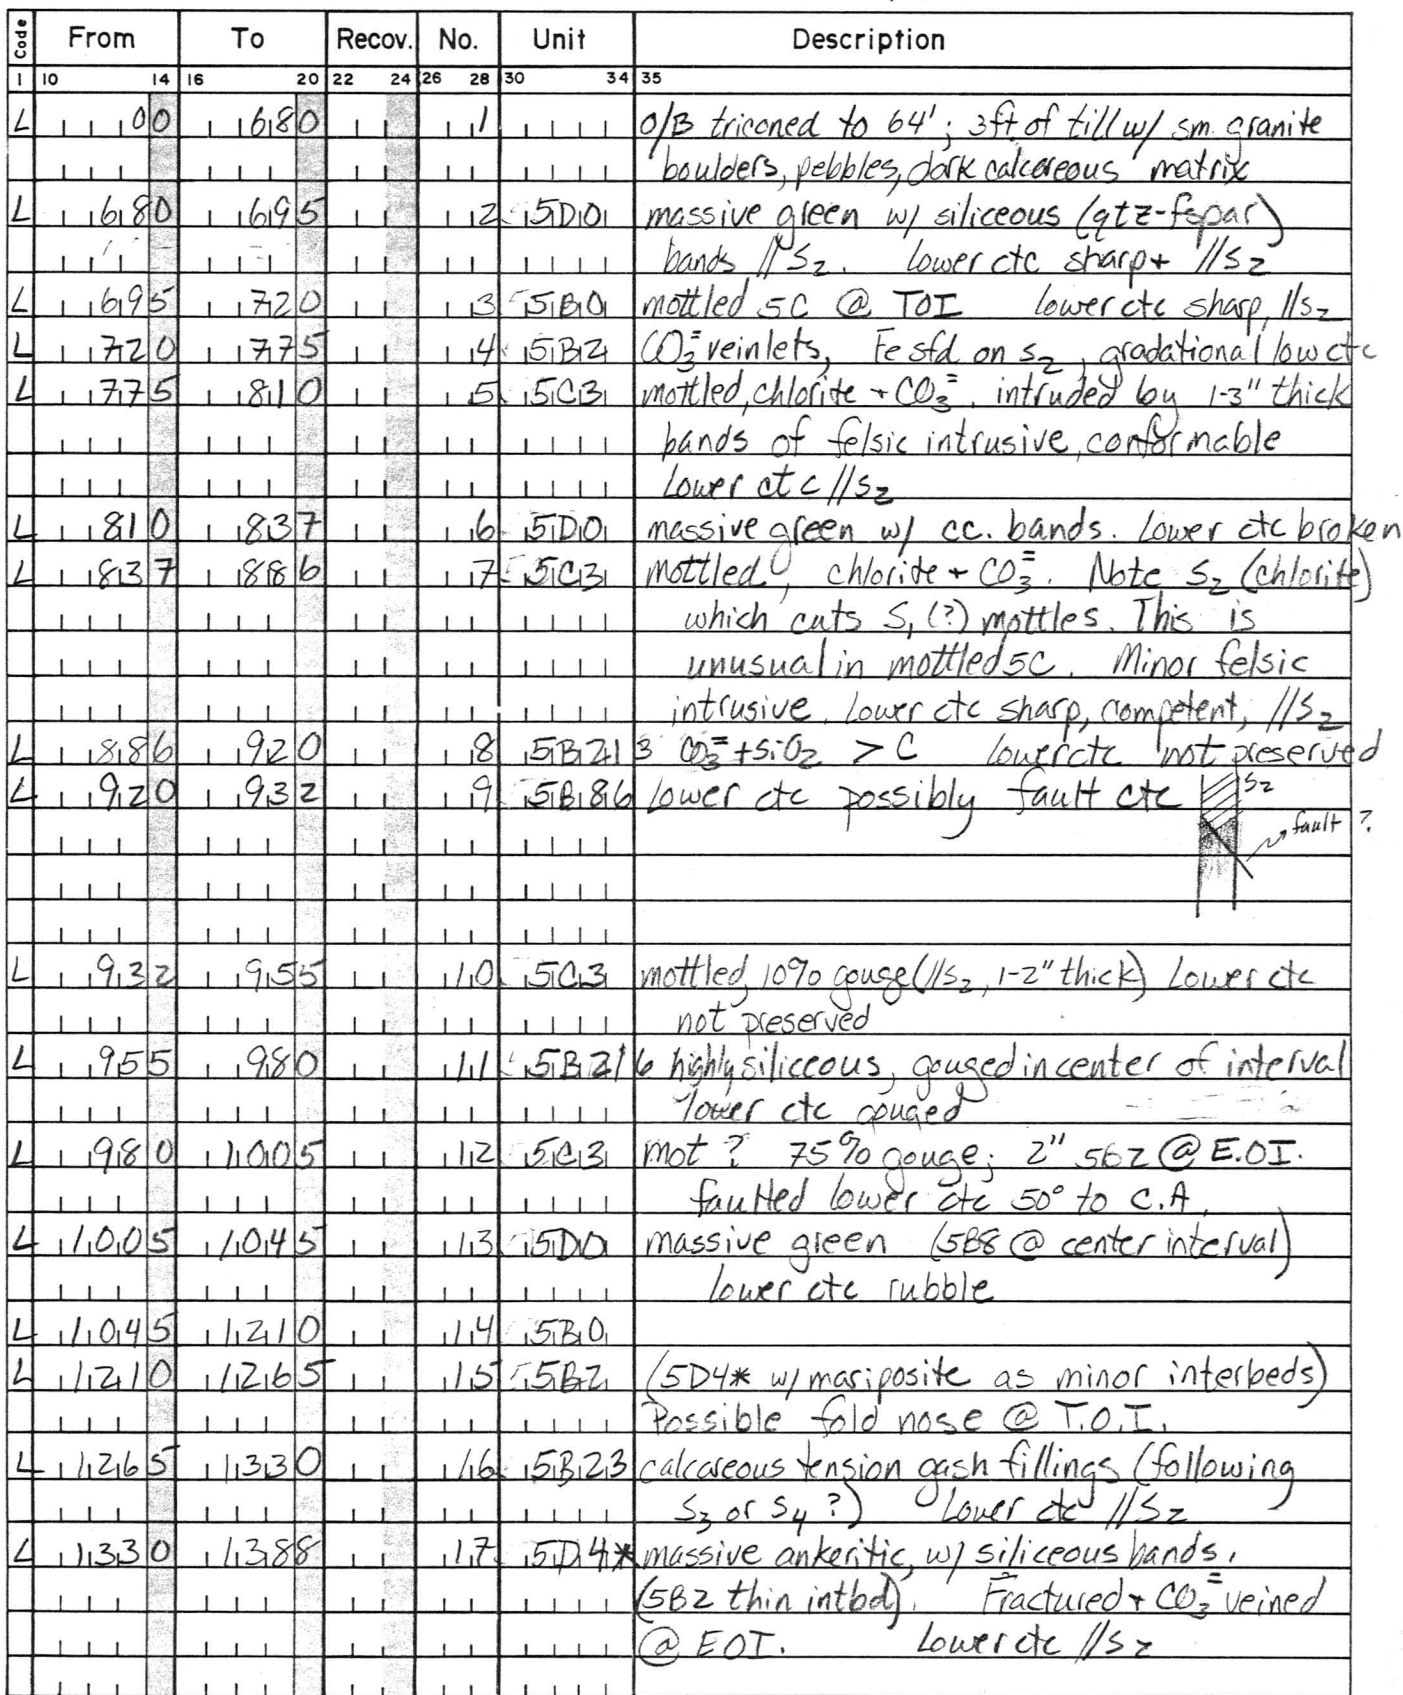 Code From To Recov. No. Unit Description
1 10 14 16 20 22 24 26 28 30 34 35
L 00 680 1 O/B triconed to 64'; 3ft of till w/ sm. granite
boulders, pebbles, dark calcareous matrix
L 680 695 2 5D0 massive green w/ siliceous (qtz-fspar)
bands //S2. Lower ctc sharp + //S2
L 695 720 3 5B0 mottled 5C @ TOI lower ctc sharp, //S2
L 720 775 4 5B2 CO3= veinlets, Fe sfd on S2, gradational low ctc
L 775 810 5 5C3 mottled, chlorite + CO3=. intruded by 1-3" thick
bands of felsic intrusive, conformable
Lower ctc //S2
L 810 837 6 5D0 massive green w/ cc. bands. Lower ctc broken
L 837 886 7 5C3 mottled, chloride + CO3=. Note S2 (chlorite)
which cuts S1 (?) mottles. This is
unusual in mottled 5C. Minor felsic
intrusive. Lower ctc sharp, competent, //S2
L 886 920 8 5B21 3 CO3= + SiO2 > C lower ctc not preserved
L 920 932 9 5B86 lower ctc possibly fault ctc S2
fault ?
L 932 955 10 5C3 mottled, 10% gouge (//S2, 1-2" thick) Lower ctc
not preserved
L 955 980 11 5B21 6 highly siliceous, gouged in center of interval
lower ctc gouged
L 980 1005 12 5C3 mot ? 75% gouge; 2" 5B2 @ E.O.I.
faulted lower ctc 50° to C.A.
L 1005 1045 13 5D0 massive green (5B8 @ center interval)
lower ctc rubble
L 1045 1210 14 5B0
L 1210 1265 15 5B2 (5D4* w/ mariposite as minor interbeds)
Possible fold nose @ T.O.I.
L 1265 1330 16 5B23 calcareous tension gash fillings (following
S3 or S4 ?) Lower ctc //S2
L 1330 1388 17 5D4* massive ankeritic, w/ siliceous bands.
(5B2 thin intbd). Fractured + CO3= veined
@ EOI. Lower ctc //S2